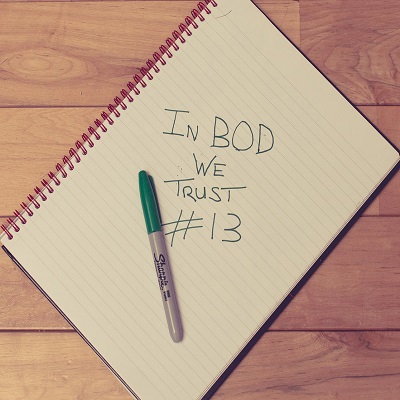 In BOD
WE
TRUST
#13
Sharpie